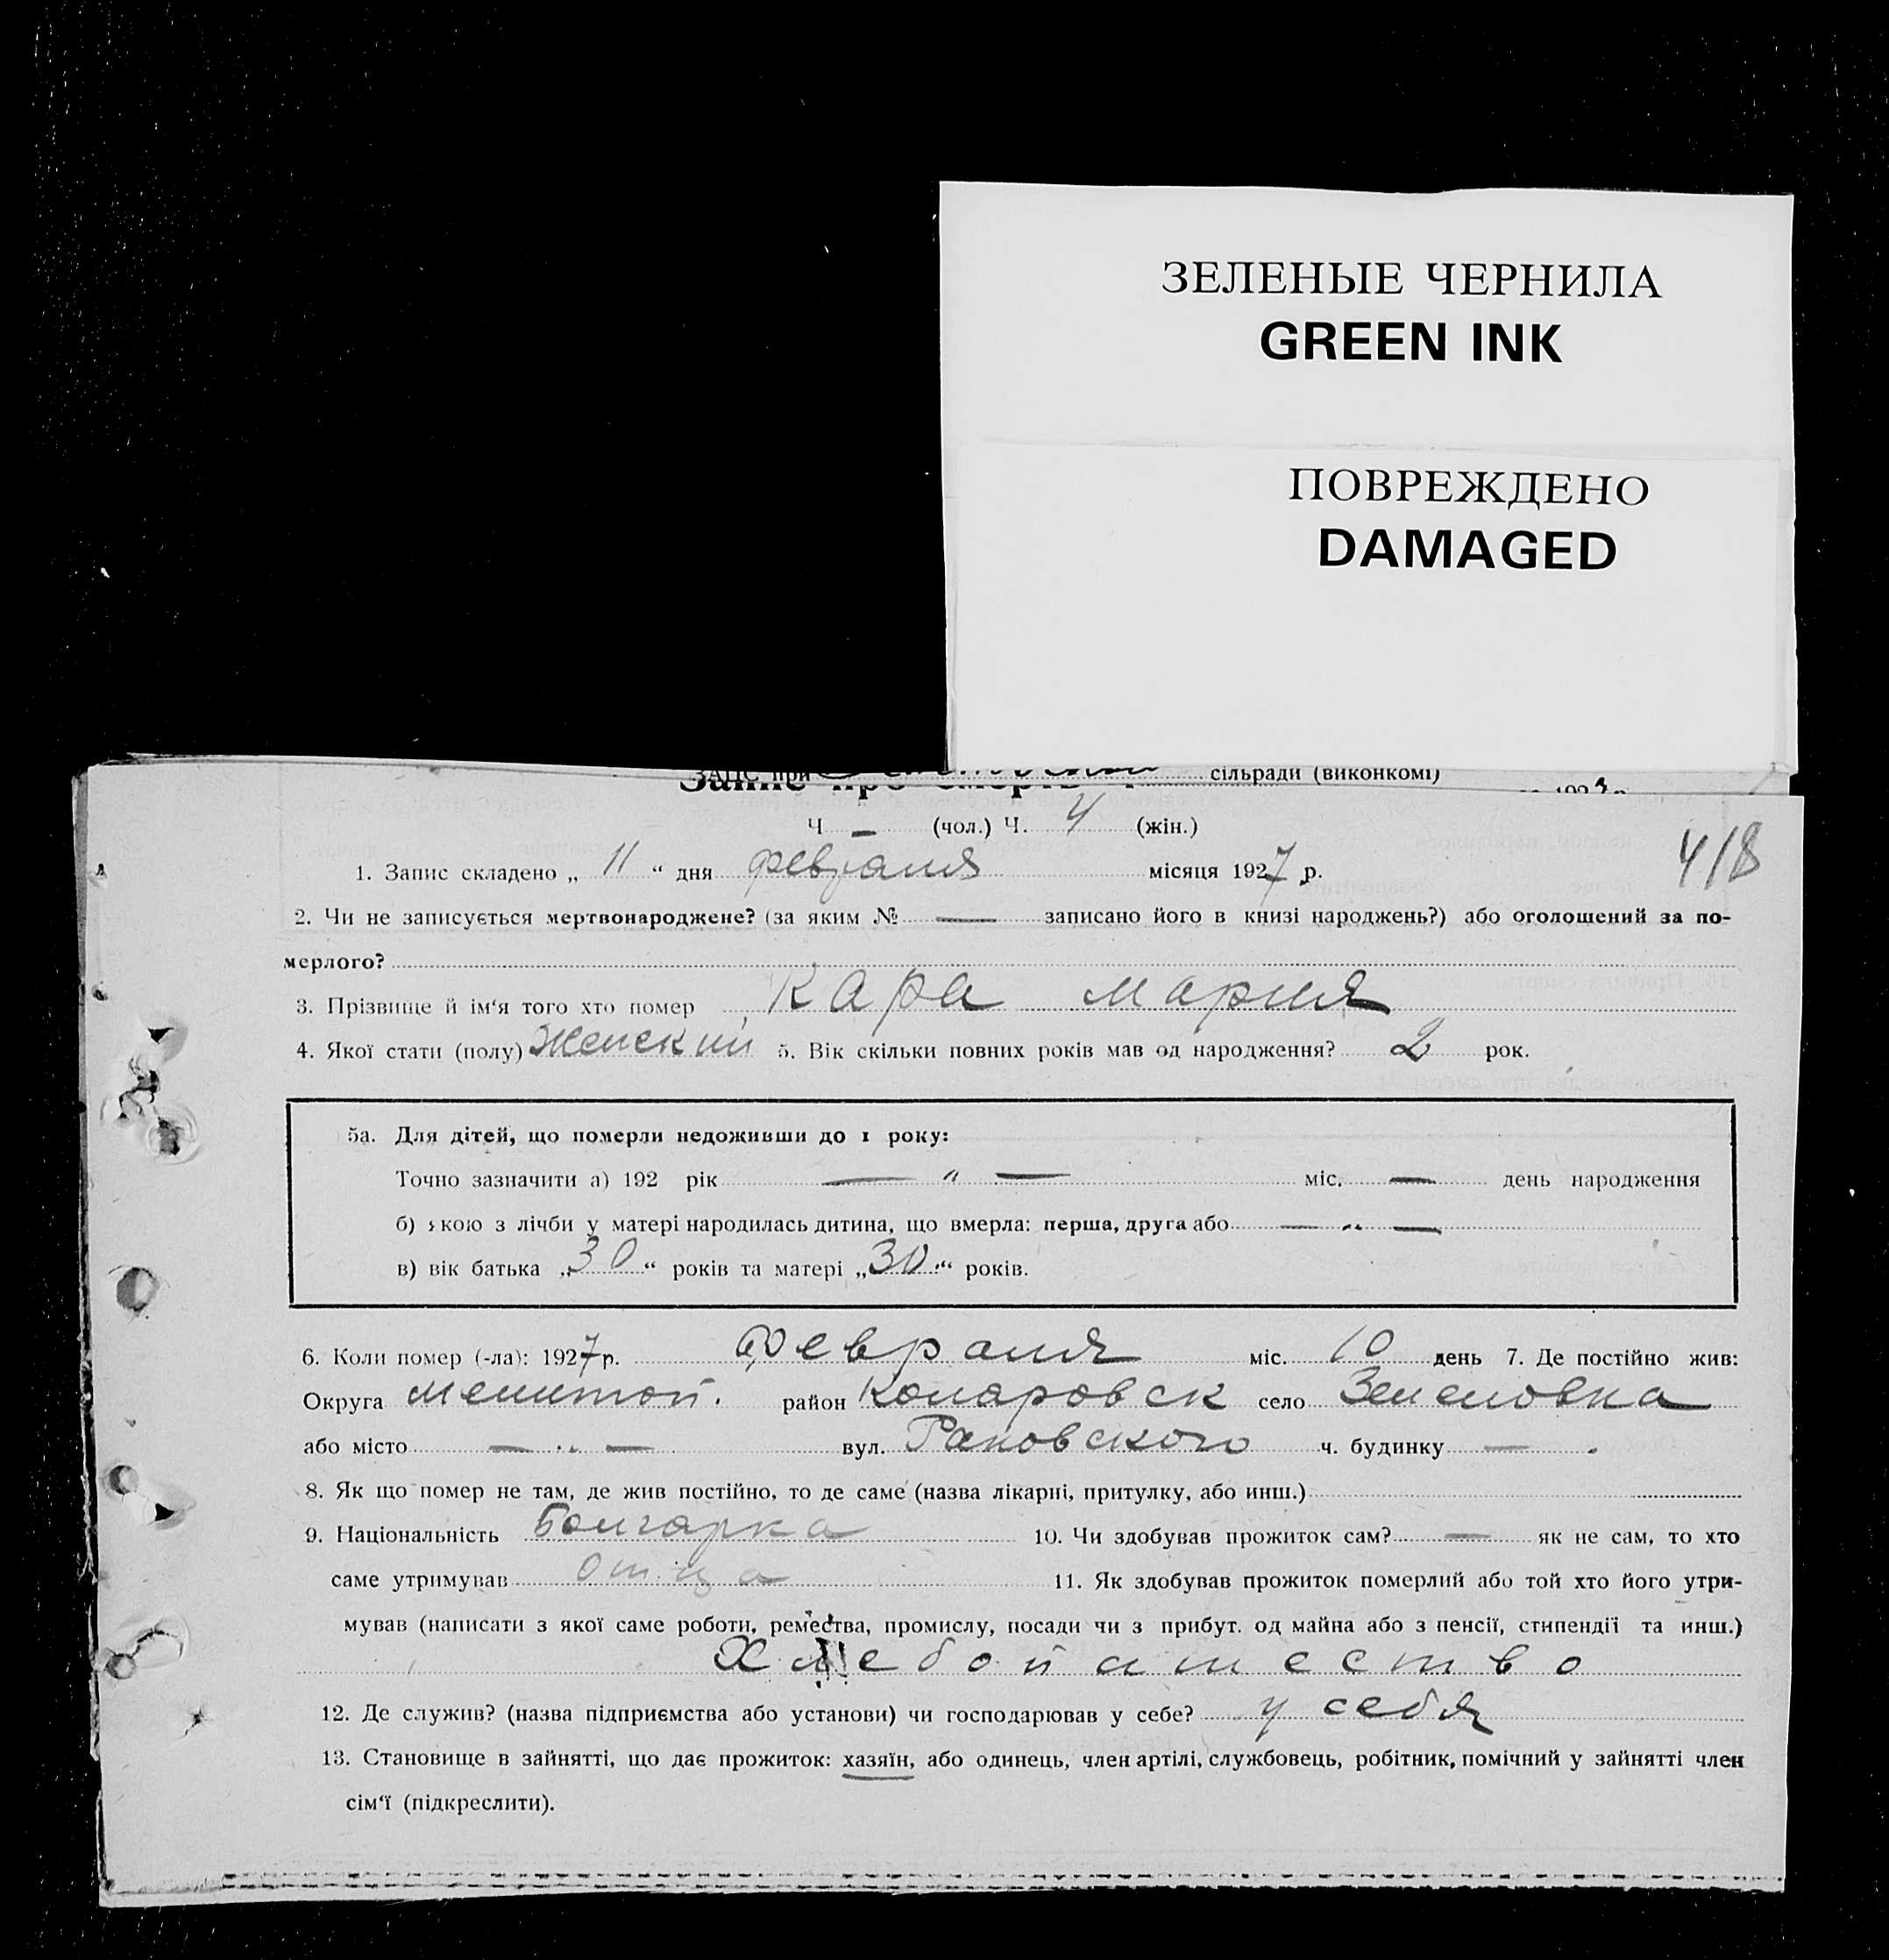 ЗЕЛЕНЫЕ ЧЕРНИЛА
GREEN INK
ПОВРЕЖДЕНО
DAMAGED
ЗАПС при сільради (виконкомі)
Ч — (чол.) Ч. 4 (жін.)
418
1. Запис складено „ 11 “ дня февраля місяця 1927 р.
2. Чи не записується мертвонароджене? (за яким № — записано його в книзі народжень?) або оголошений за по-
мерлого?
3. Прізвище й ім‘я того хто помер Кара Мария
4. Якої стати (полу) Женский 5. Вік скільки повних років мав од народження? 2 рок.
5а. Для дітей, що померли недоживши до 1 року:
Точно зазначити а) 192 рік — „ — міс. — день народження
б) якою з лічби у матері народилась дитина, що вмерла: перша, друга або — „ —
в) вік батька „30“ років та матері „30“ років.
6. Коли помер (-ла): 1927 р. Февраля міс. 10 день 7. Де постійно жив:
Округа Мелитоп. район Коларовск село Зеленовка
або місто — „ — вул. Раковского ч. будинку — .
8. Як що помер не там, де жив постійно, то де саме (назва лікарні, притулку, або инш.)
9. Національність Болгарка 10. Чи здобував прожиток сам? — як не сам, то хто
саме утримував отца 11. Як здобував прожиток померлий або той хто його утри-
мував (написати з якої саме роботи, ремества, промислу, посади чи з прибут. од майна або з пенсії, стипендії та инш.)
Хлебопашество
12. Де служив? (назва підприємства або установи) чи господарював у себе? у себя
13. Становище в зайнятті, що дає прожиток: хазяїн, або одинець, член артілі, службовець, робітник, помічний у зайнятті член
сім‘ї (підкреслити).